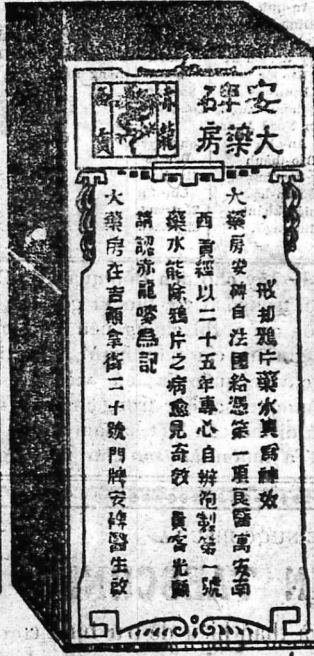 安碑大藥房
赤龍
西貢
戒却鴉片藥水真爲神效
大藥房安碑自法國給憑第一項良醫寓安南
西貢經以二十五年專心自辦炮製第一號
藥水能除鴉片之病愈見奇效 貴客光顧
請認赤龍嘜爲記
大藥房在吉願拿街二十號門牌安碑醫生啟